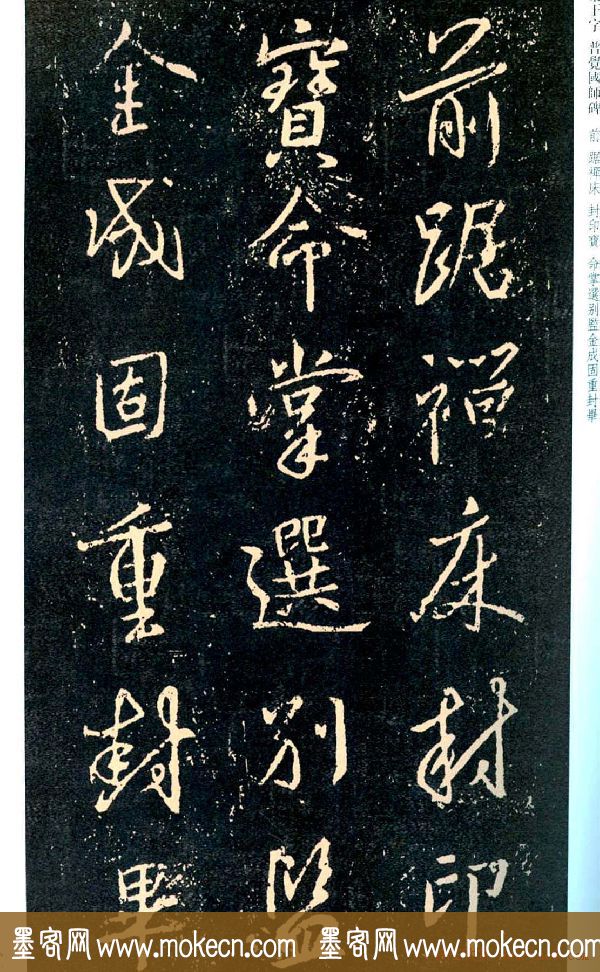 前踞禪床封印
寶命掌選別監
金成固重封畢
集王字 普覺國師碑 前 踞禪床 封印寶 命掌選别監金成固重封畢
墨客网 www.mokecn.com 墨客网 www.mokecn.com